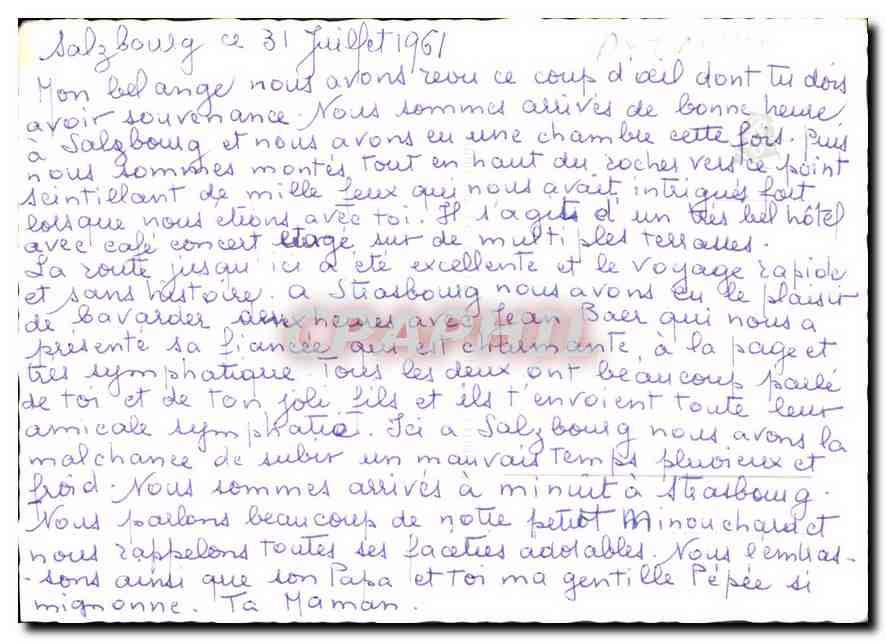 Salzbourg ce 31 Juillet 1961
Mon bel ange nous avons revu ce coup d'œil dont tu dois
avoir souvenance. Nous sommes arrivés de bonne heure
à Salzbourg et nous avons eu une chambre cette fois. Puis
nous sommes montés tout en haut du rocher vers ce point
scintillant de mille feux qui nous avait intrigués fort
lorsque nous étions avec toi. Il s'agit d'un très bel hôtel
avec café concert étagé sur de multiples terrasses.
La route jusqu'ici a été excellente et le voyage rapide
et sans histoire. a Strasbourg nous avons eu le plaisir
de bavarder deux heures avec Jean Baer qui nous a
présenté sa fiancée qui est charmante, à la page et
très symphatique. Tous les deux ont beaucoup parlé
de toi et de ton joli fils et ils t'envoient toute leur
amicale symphatie. Ici a Salzbourg nous avons la
malchance de subir un mauvais temps pluvieux et
froid. Nous sommes arrivés à minuit à Strasbourg.
Nous parlons beaucoup de notre petiot Minouchard et
nous rappelons toutes ses facéties adorables. Nous l'embras-
-sons ainsi que son Papa et toi ma gentille Pépée si
mignonne. Ta Maman.